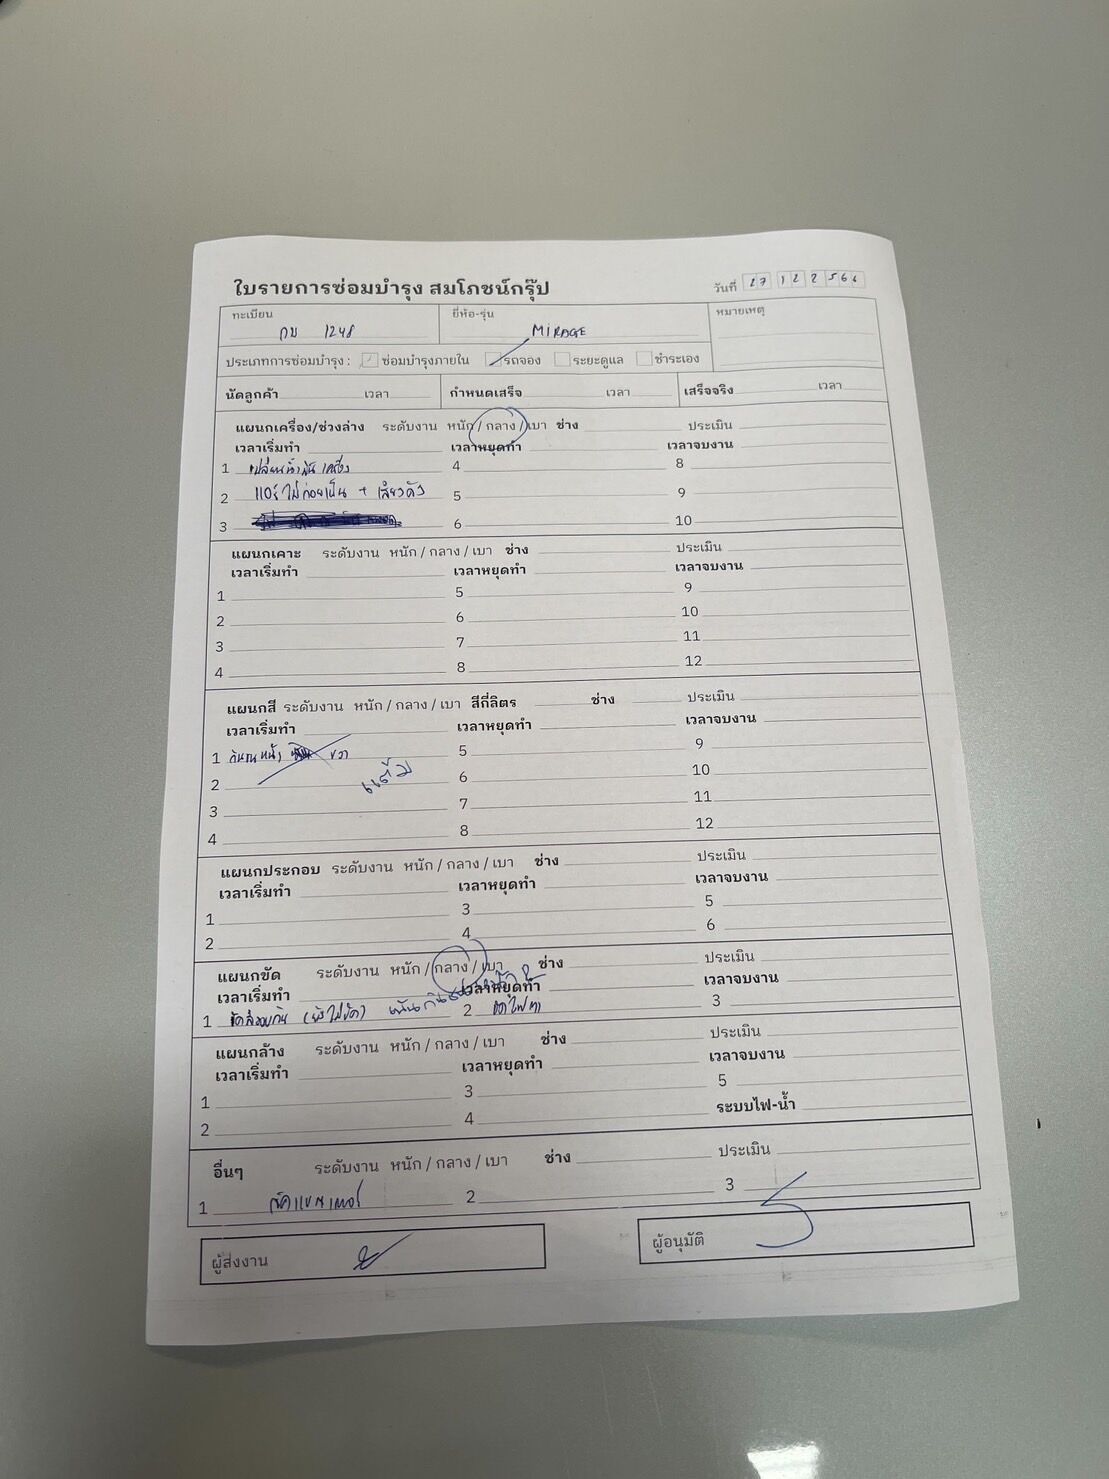 ใบรายการซ่อมบำรุง สมโภชน์กรุ๊ป
วันที่ 27 12 2566
ทะเบียน กบ 1248 ยี่ห้อ-รุ่น MIRAGE หมายเหตุ
ประเภทการซ่อมบำรุง : ซ่อมบำรุงภายใน รถจอง ระยะดูแล ชำระเอง
นัดลูกค้า เวลา กำหนดเสร็จ เวลา เสร็จจริง เวลา
แผนกเครื่อง/ช่วงล่าง ระดับงาน หนัก / กลาง / เบา ช่าง ประเมิน
เวลาเริ่มทำ เวลาหยุดทำ เวลาจบงาน
1 เปลี่ยนน้ำมันเครื่อง 4 8
2 แอร์ไม่ค่อยเย็น + เสียงดัง 5 9
3 6 10
แผนกเคาะ ระดับงาน หนัก / กลาง / เบา ช่าง ประเมิน
เวลาเริ่มทำ เวลาหยุดทำ เวลาจบงาน
1 5 9
2 6 10
3 7 11
4 8 12
แผนกสี ระดับงาน หนัก / กลาง / เบา สีกี่ลิตร ช่าง ประเมิน
เวลาเริ่มทำ เวลาหยุดทำ เวลาจบงาน
1 กันชนหน้า ขวา 5 9
2 แต้ม 6 10
3 7 11
4 8 12
แผนกประกอบ ระดับงาน หนัก / กลาง / เบา ช่าง ประเมิน
เวลาเริ่มทำ เวลาหยุดทำ เวลาจบงาน
1 3 5
2 4 6
แผนกขัด ระดับงาน หนัก / กลาง / เบา ช่าง ประเมิน
เวลาเริ่มทำ เวลาหยุดทำ เวลาจบงาน
1 (ยังไม่ขัด) 2 ขัดไฟตา 3
แผนกล้าง ระดับงาน หนัก / กลาง / เบา ช่าง ประเมิน
เวลาเริ่มทำ เวลาหยุดทำ เวลาจบงาน
1 3 5
2 4 ระบบไฟ-น้ำ
อื่นๆ ระดับงาน หนัก / กลาง / เบา ช่าง ประเมิน
1 เช็คแบตเตอรี่ 2 3
ผู้ส่งงาน ผู้อนุมัติ